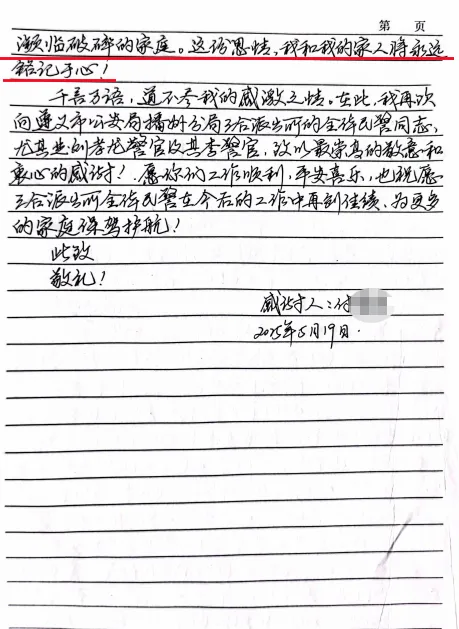 第 页
濒临破碎的家庭。这份恩情,我和我的家人将永远
铭记于心!
千言万语,道不尽我的感激之情。在此,我再次
向遵义市公安局播州分局三合派出所的全体民警同志,
尤其是刘孝龙警官及其李警官,致以最崇高的敬意和
衷心的感谢!愿你们工作顺利,平安喜乐,也祝愿
三合派出所全体民警在今后的工作中再创佳绩,为更多
的家庭保驾护航!
此致
敬礼!
感谢人:付
2025年5月19日.